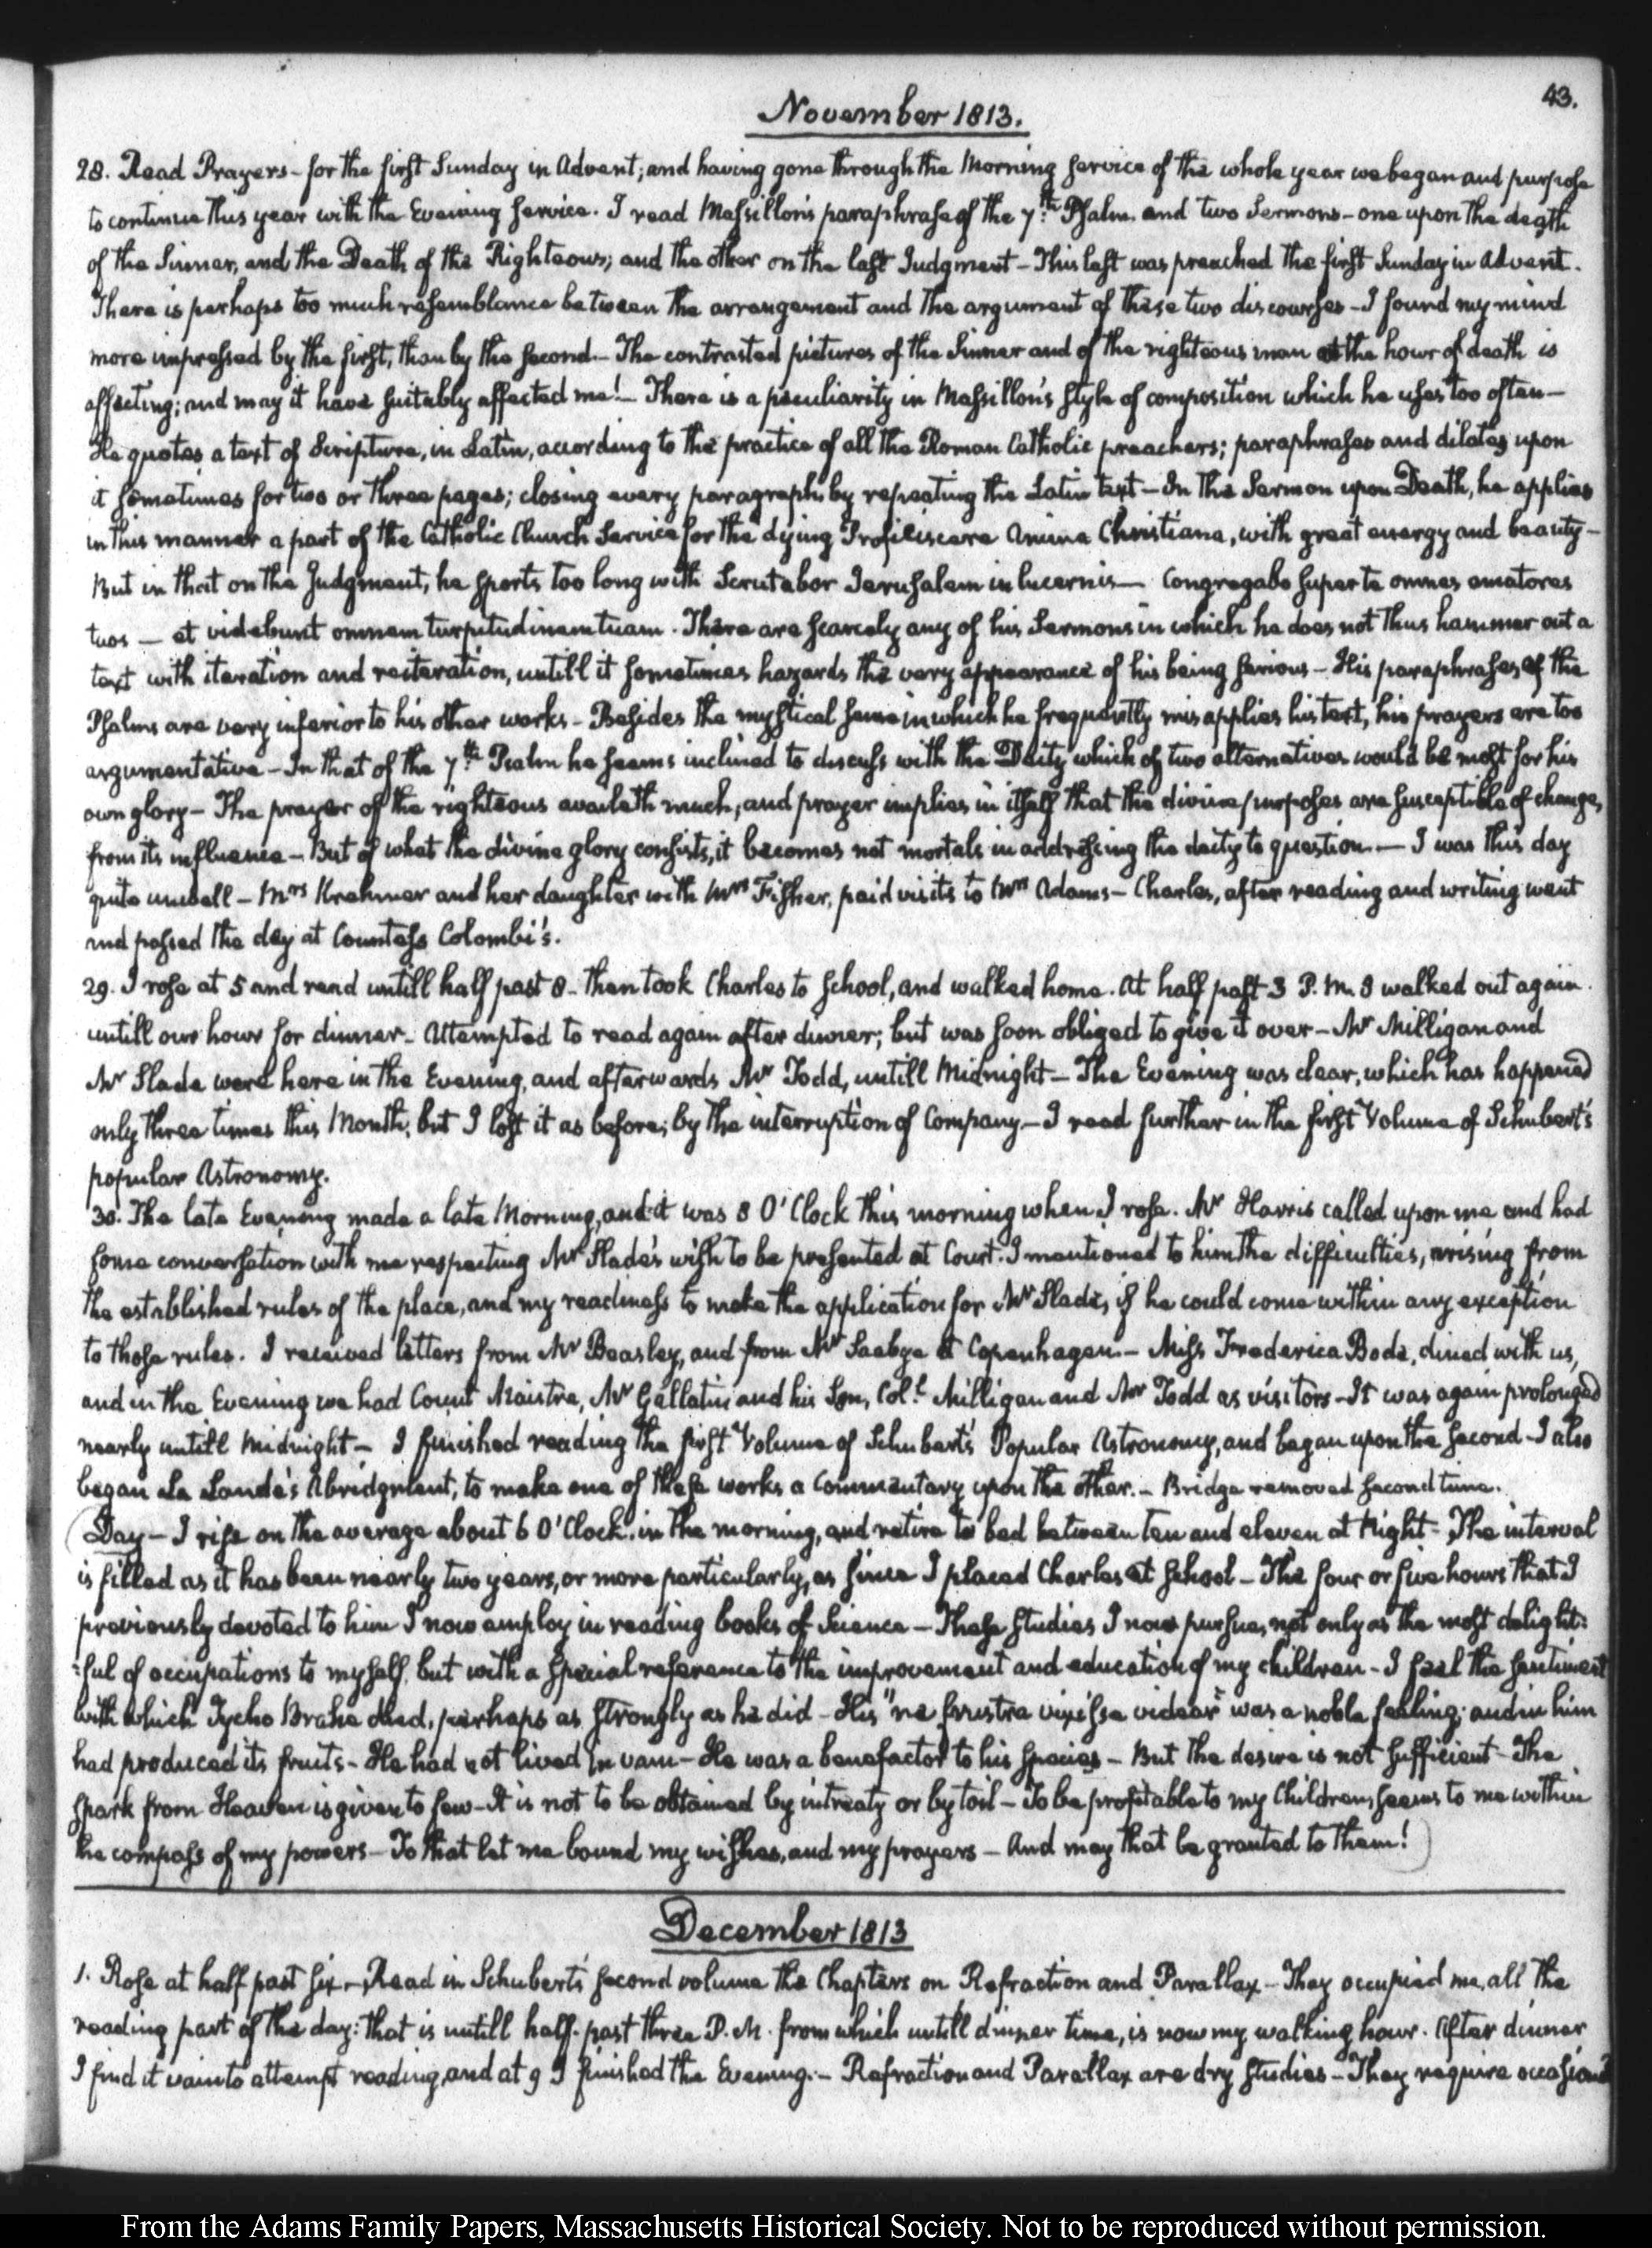 43.
November 1813.
28. Read Prayers - for the first Sunday in Advent; and having gone through the Morning service of the whole year we began and purpose
to continue this year with the Evening service. I read Massillon's paraphrase of the 7th Psalm. and two Sermons - one upon the death
of the Sinner, and the Death of the Righteous; and the other on the last Judgment - This last was preached the first Sunday in Advent.
There is perhaps too much resemblance between the arrangement and the argument of these two discourses - I found my mind
more impressed by the first, than by the second. - The contrasted pictures of the Sinner and of the righteous man at the hour of death is
affecting; and may it have suitably affected me! - There is a peculiarity in Massillon's style of composition which he uses too often -
He quotes a text of Scripture, in Latin, according to the practice of all the Roman Catholic preachers; paraphrases and dilates upon
it sometimes for two or three pages; closing every paragraph by repeating the Latin text - In the Sermon upon Death, he applies
in this manner a part of the Catholic Church Service for the dying Proficiscere Anima Christiana, with great energy and beauty -
But in that on the Judgment, he sports too long with Scrutabor Jerusalem in lucernis - Congregabo super te omnes amatores
tuos - et videbunt omnem turpitudinem tuam. There are scarcely any of his Sermons in which he does not thus hammer out a
text with iteration and reiteration, untill it sometimes hazards the very appearance of his being serious - His paraphrases of the
Psalms are very inferior to his other works - Besides the mystical sense in which he frequently misapplies his text, his prayers are too
argumentative - In that of the 7th Psalm he seems inclined to discuss with the Deity which of two alternatives would be most for his
own glory - The prayer of the righteous availeth much, and prayer implies in itself that the divine purposes are susceptible of change,
from its influence - But of what the divine glory consists, it becomes not mortals in addressing the deity to question. - I was this day
quite unwell - Mrs Krehmer and her daughter with Mrs Fisher, paid visits to Mrs Adams - Charles, after reading and writing went
and passed the day at Countess Colombi's.
29. I rose at 5 and read untill half past 8 - then took Charles to School, and walked home. At half past 3 P.M. I walked out again
untill our hour for dinner - Attempted to read again after dinner; but was soon obliged to give it over - Mr Milligan and
Mr Slade were here in the Evening, and afterwards Mr Todd, untill Midnight - The Evening was clear, which has happened
only three times this Month; but I lost it as before, by the interruption of Company. - I read further in the first Volume of Schubert's
popular Astronomy.
30. The late Evening made a late Morning, and it was 8 O'Clock this morning when I rose. Mr Harris called upon me and had
some conversation with me respecting Mr Slade's wish to be presented at Court. I mentioned to him the difficulties, arising from
the established rules of the place, and my readiness to make the application for Mr Slade, if he could come within any exception
to those rules. I received letters from Mr Beasley, and from Mr Saabye at Copenhagen - Miss Frederica Bode, dined with us,
and in the Evening we had Count Maistre, Mr Gallatin and his Son, Coll. Milligan and Mr Todd as visitors - It was again prolonged
nearly untill Midnight - I finished reading the first Volume of Schubert's Popular Astronomy, and began upon the second - I also
began La Lande's Abridgment, to make one of these works a Commentary upon the other. - Bridge removed second time.
(Day - I rise on the average about 6 O'Clock, in the morning, and retire to bed between ten and eleven at Night - The interval
is filled as it has been nearly two years, or more particularly, as since I placed Charles at School - The four or five hours that I
previously devoted to him I now employ in reading books of Science - These studies I now pursue, not only as the most delight=
=ful of occupations to myself, but with a special reference to the improvement and education of my children - I feel the sentiment
with which Tycho Brahe died, perhaps as strongly as he did - His "ne frustra vixisse videar" was a noble feeling; and in him
had produced its fruits - He had not lived in vain - He was a benefactor to his species - But the desire is not sufficient - The
spark from Heaven is given to few - It is not to be obtained by intreaty or by toil - To be profitable to my Children, seems to me within
the compass of my powers - To that let me bound my wishes, and my prayers - And may that be granted to them!)
December 1813
1. Rose at half past six - Read in Schubert's second volume the Chapters on Refraction and Parallax - They occupied me, all the
reading part of the day: that is untill half-past three P.M. from which untill dinner time, is now my walking hour. After dinner
I find it vain to attempt reading, and at 9 I finished the Evening. - Refraction and Parallax are dry studies - They require occasional
From the Adams Family Papers, Massachusetts Historical Society. Not to be reproduced without permission.